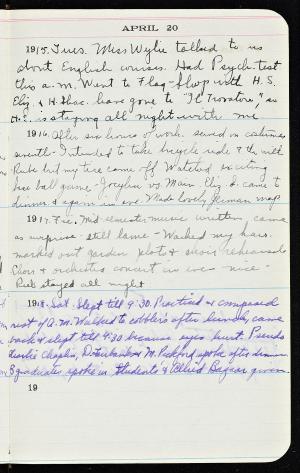 APRIL 20
1915. Tues. Miss Wylie talked to us
about English courses. Had Psych. test
this a.m. Went to Flag-Shop with H. S.
Eliz. & H. have gone to "Il Trovatore," as
H.S. is staying all night with me
1916. After six hours of work. sewed on costumes
Intended to take bicycle ride with
Rube but my tire came off. Watched exciting
base ball game - vs. Main. Eliz. S. came to
dinner & again in eve. Made lovely German map
1917. Fri. Mid-semester music written, came
as surprise - still lame - Washed my hair.
marked out garden plots & choir rehearsals
Choir & orchestra concert in eve - nice
stayed all night
1918. Sat. Slept till 9:30. Practised & composed
rest of A.M. Walked to cobbler's after lunch, came
back & slept till 4:30 because eyes hurt. Pseudo
Charlie Chaplin, D. Fairbanks & M. Pickford spoke after dinner.
3 graduates spoke in Students' & Allied Bazaar given.
19